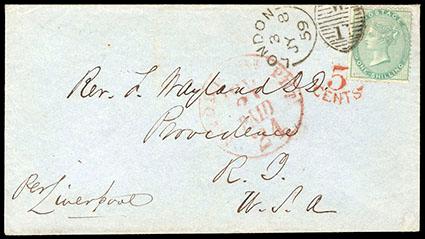 LONDON
3
JY 8
59
W
17
POSTAGE
ONE SHILLING
5
CENTS
PAID
24
Rev. F. Wayland D.D.
Providence
R. I.
U.S.A
Per
Liverpool